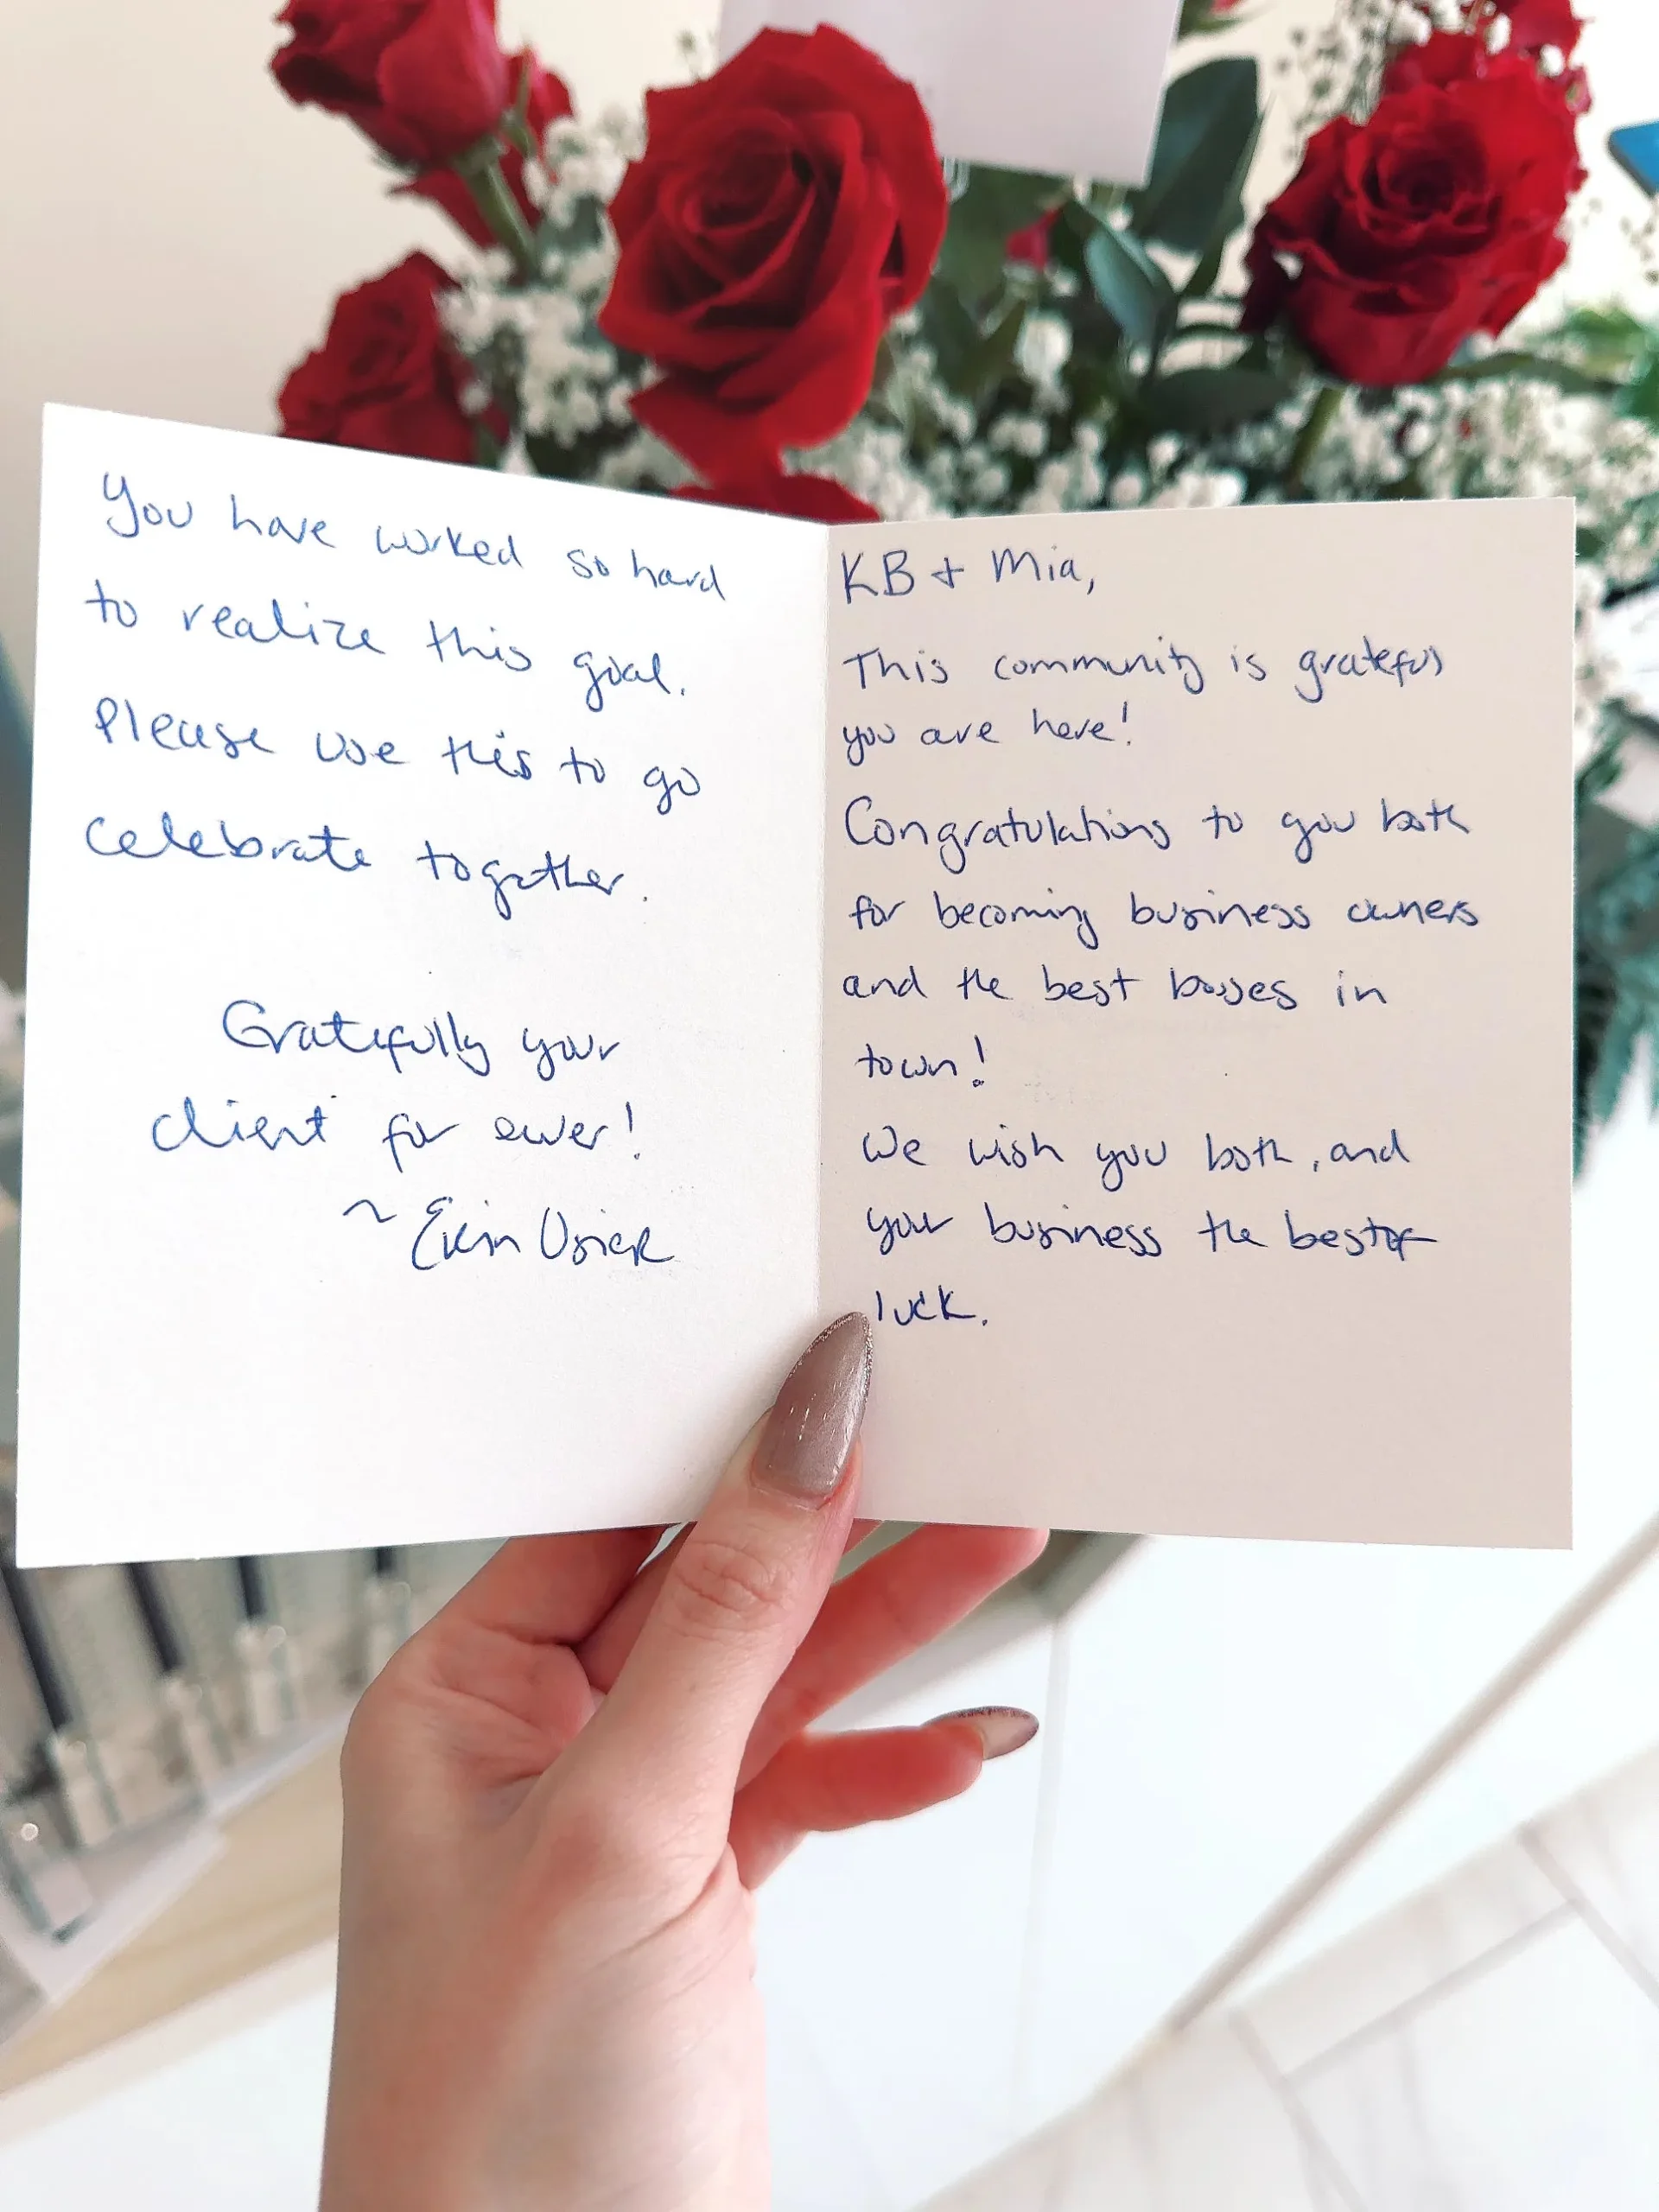 You have worked so hard
to realize this goal.
Please use this to go
celebrate together.
Gratefully your
client for ever!
~ Erin
KB + Mia,
This community is grateful
you are here!
Congratulations to you both
for becoming business owners
and the best bosses in
town!
We wish you both, and
your business the best of
luck.